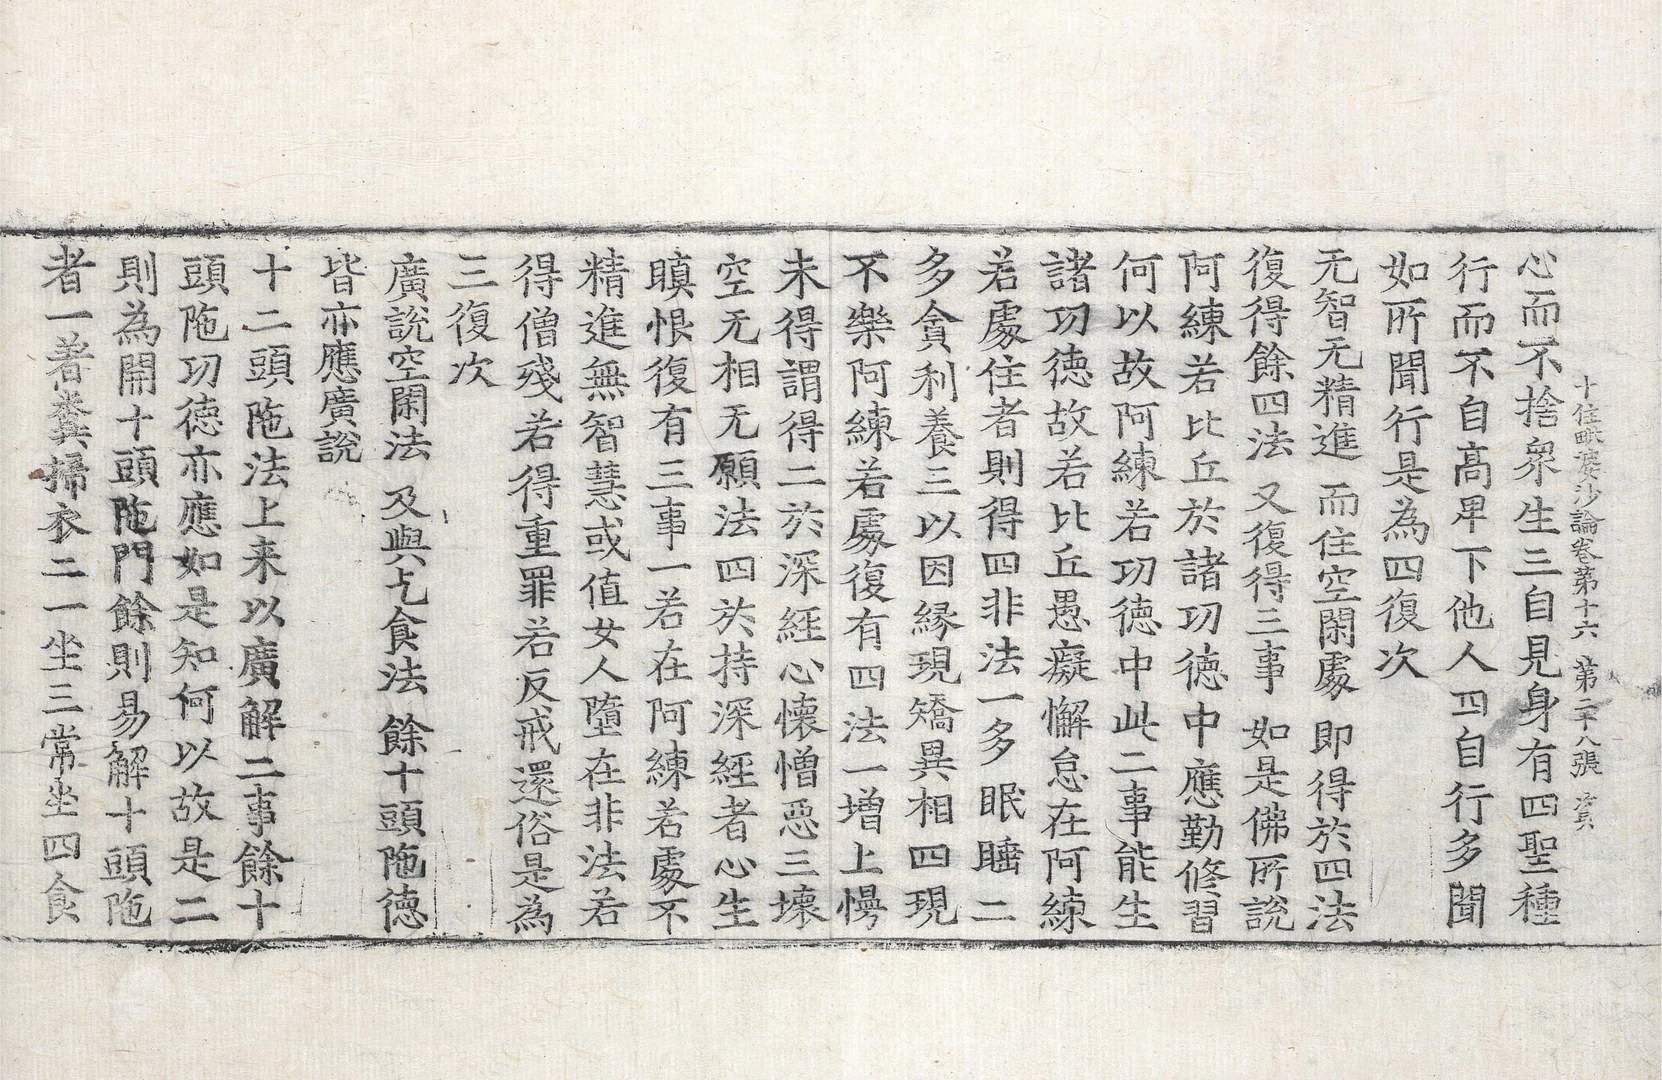 十住毗婆沙論卷第十六 第二十八張 賓
心而不捨衆生三自見身有四聖種
行而不自高卑下他人四自行多聞
如所聞行是為四復次
无智无精進 而住空閑處 即得於四法
復得餘四法 又復得三事 如是佛所說
阿練若比丘於諸功德中應勤修習
何以故阿練若功德中此二事能生
諸功德故若比丘愚癡懈怠在阿練
若處住者則得四非法一多眠睡二
多貪利養三以因縁現矯異相四現
不樂阿練若處復有四法一增上慢
未得謂得二於深經心懷憎惡三壞
空无相无願法四於持深經者心生
瞋恨復有三事一若在阿練若處不
精進無智慧或值女人墮在非法若
得僧殘若得重罪若反戒還俗是為
三復次
廣說空閑法 及與乞食法 餘十頭陁德
皆亦應廣說
十二頭陁法上来以廣解二事餘十
頭陁功德亦應如是知何以故是二
則為開十頭陁門餘則易解十頭陁
者一著糞掃衣二一坐三常坐四食